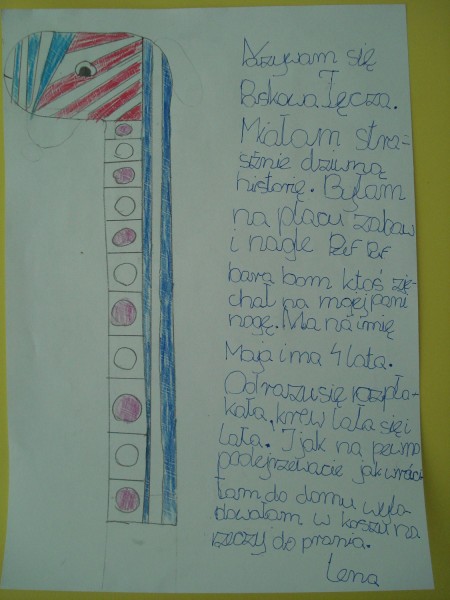 Nazywam się
Paskowa Tęcza.
Miałam stra-
sznie dziwną
historię. Byłam
na placu zabaw
i nagle Pif Paf
bara bom ktoś zje-
chał na mojej pani
nogę. Ma na imię
Maja i ma 4 lata.
Od razu się rozpła-
kała, krew lała się i
lała. I jak na pewno
podejrzewacie jak wróci-
łam do domu wylą-
dowałam w koszu na
rzeczy do prania.
Lena